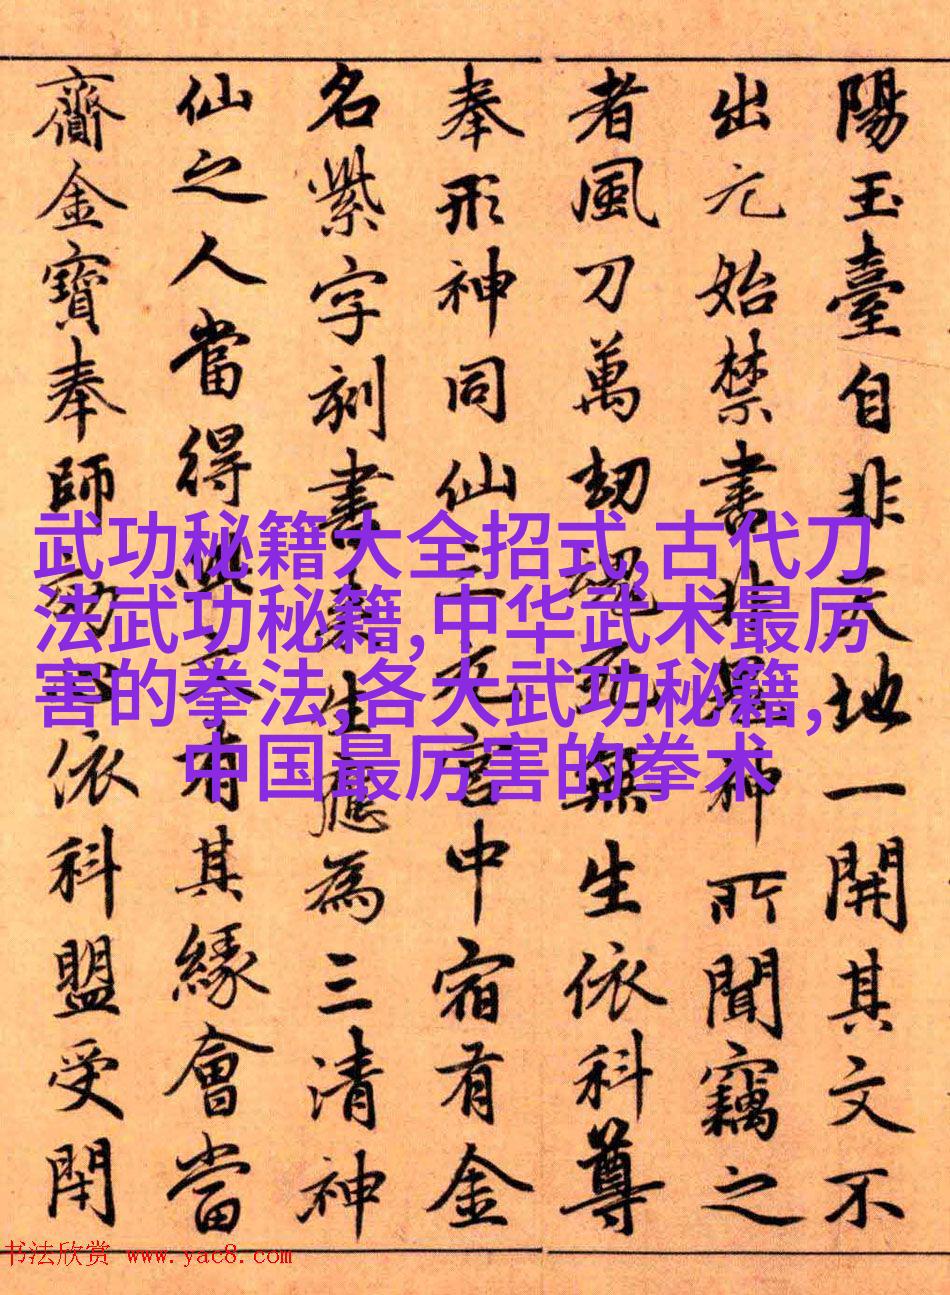 陽玉臺自非天地一開其文不
出元始禁書非鬼神所聞竊之
者風刀萬劫死無生依科尊
奉形神同仙三元宮中宿有金
名紫字刻書來生應為三清神
仙之人當得此文有其緣會當
齎金寶奉師心依科盟受閇
武功秘籍大全招式,古代刀
法武功秘籍,中华武术最厉
害的拳法,各大武功秘籍,
中国最厉害的拳术
书法欣赏 www.yac8.com